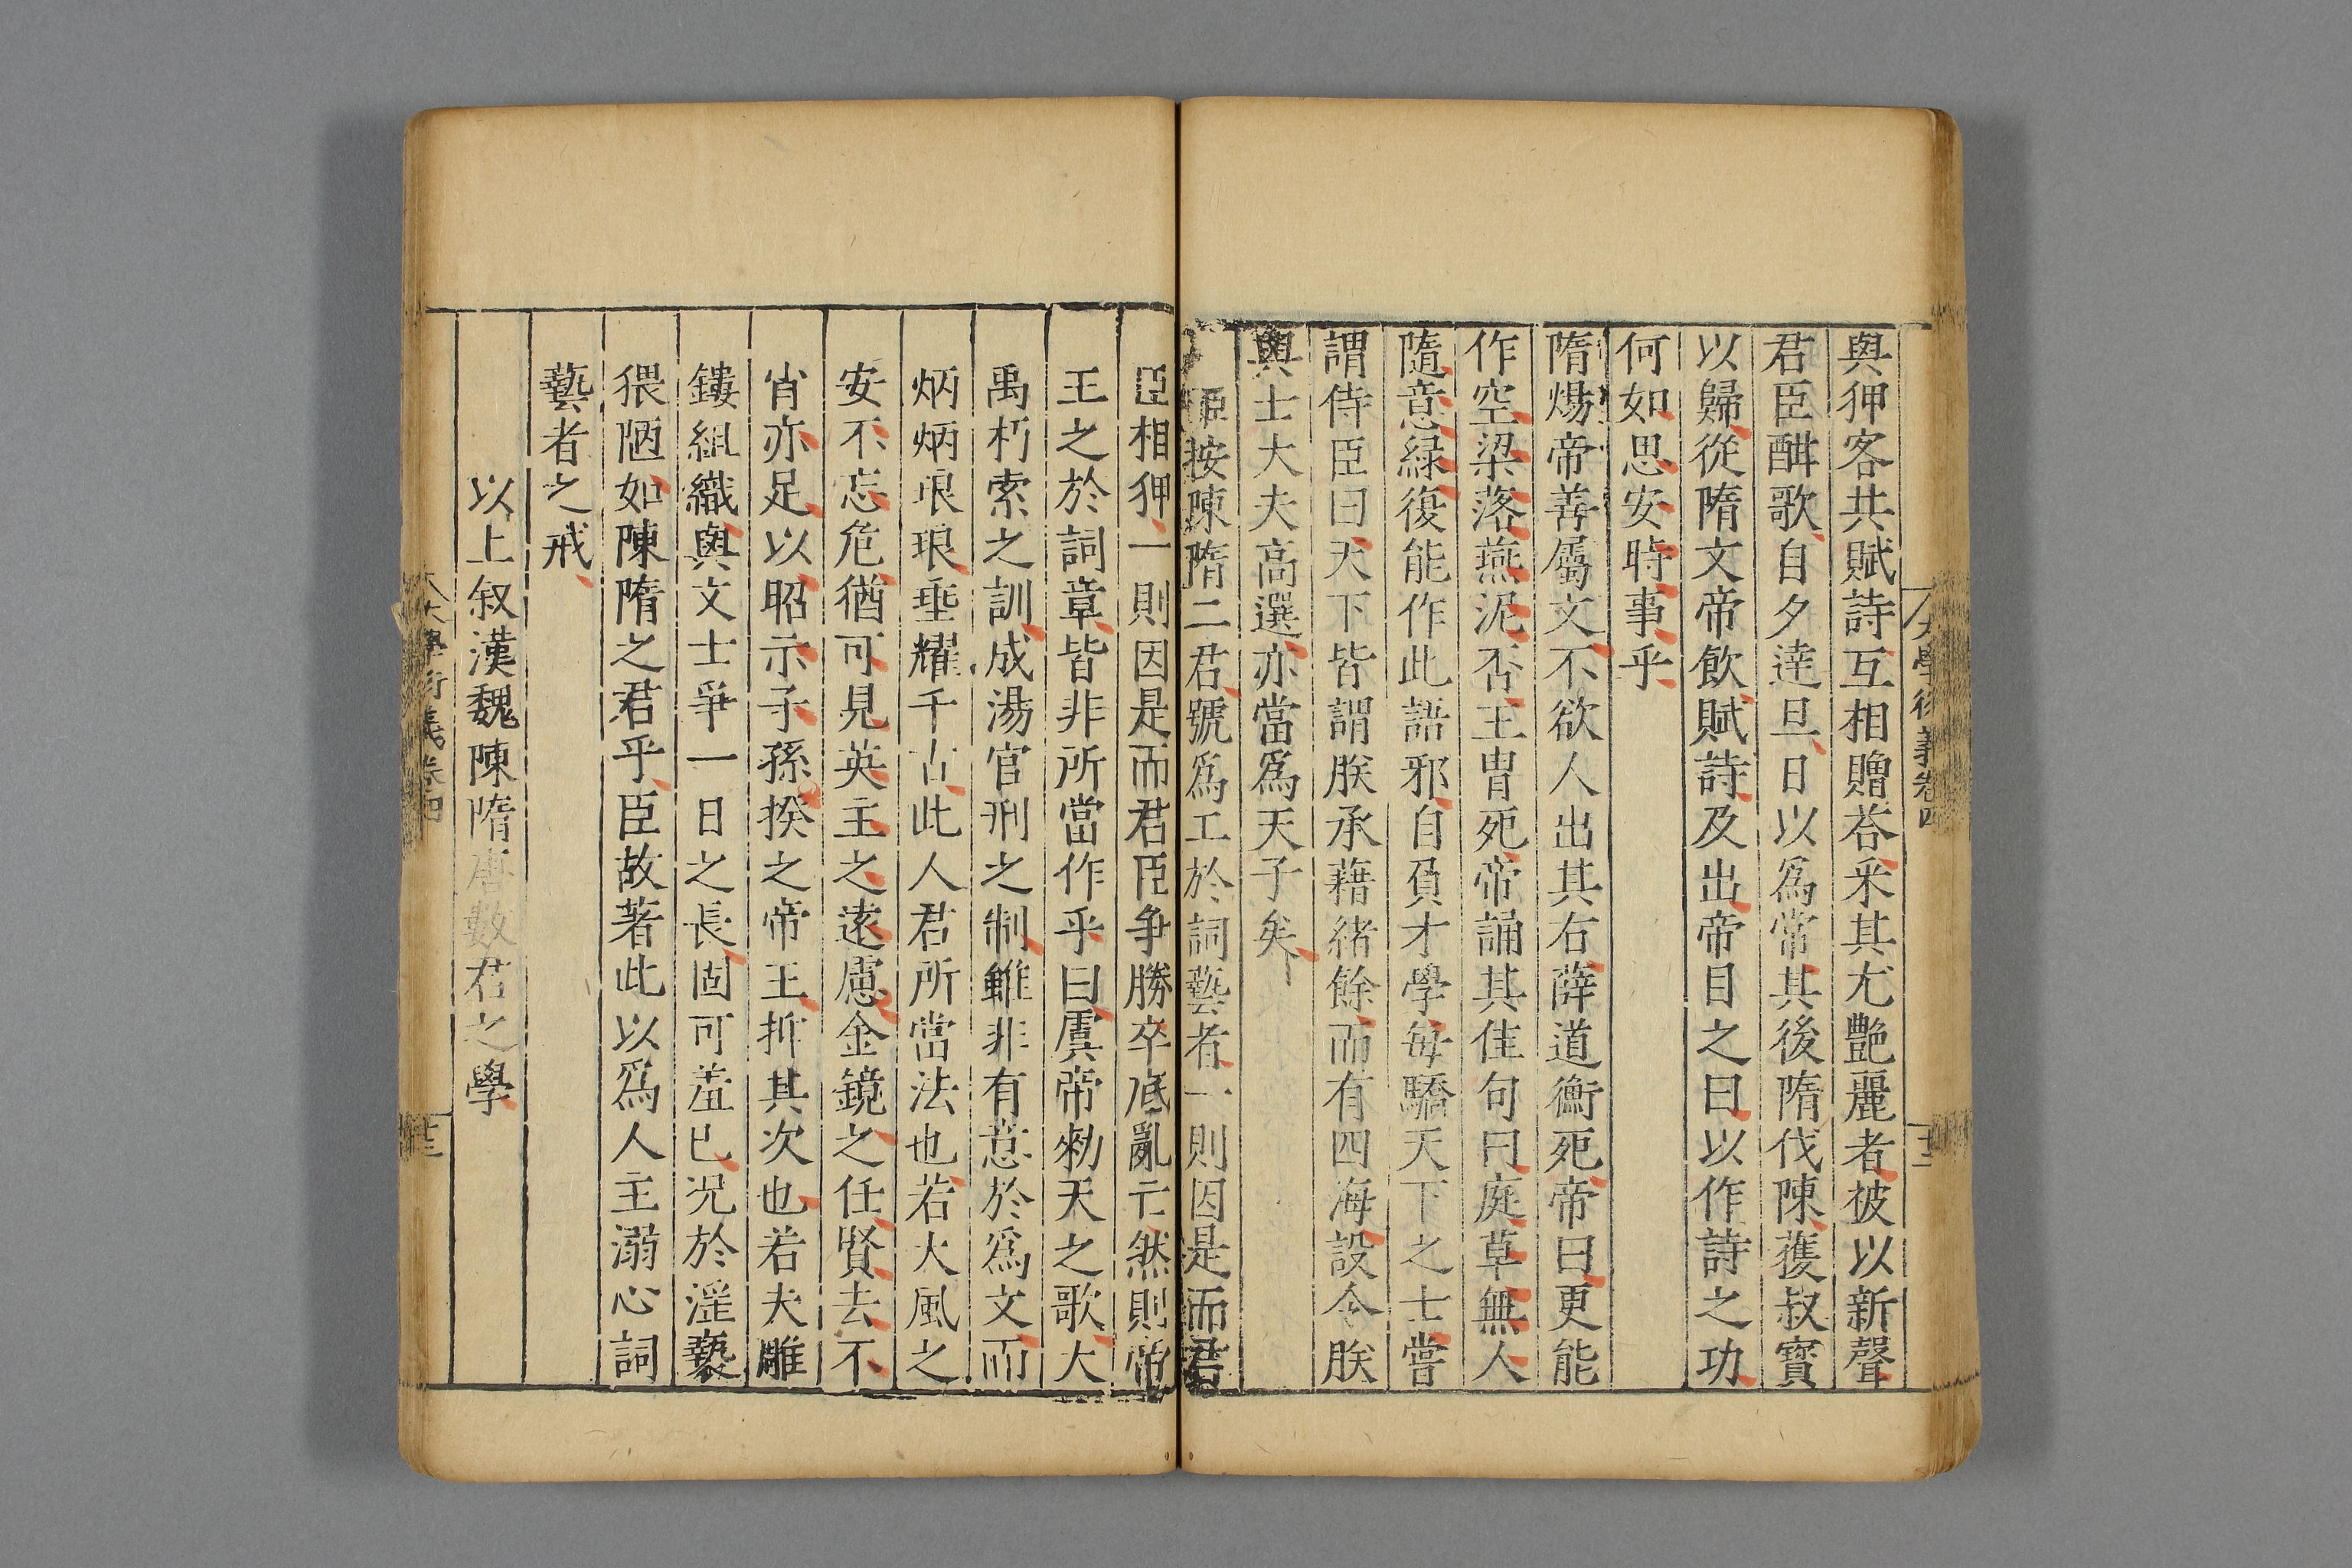 大學衍義卷四
與狎客共賦詩互相贈荅采其尤艷麗者被以新聲
君臣酣歌自夕達旦日以爲常其後隋伐陳獲叔寶
以歸從隋文帝飲賦詩及出帝目之曰以作詩之功
何如思安時事乎
隋煬帝善屬文不欲人出其右薛道衡死帝曰更能
作空梁落燕泥否王胄死帝誦其佳句曰庭草無人
隨意緑復能作此語邪自負才學每驕天下之士嘗
謂侍臣曰天下皆謂朕承藉緒餘而有四海設令朕
與士大夫高選亦當爲天子矣
臣按陳隋二君號爲工於詞藝者一則因是而君
臣相狎一則因是而君臣争勝卒底亂亡然則帝
王之於詞章皆非所當作乎曰虞帝勑天之歌大
禹朽索之訓成湯官刑之制雖非有意於爲文而
炳炳琅琅垂耀千古此人君所當法也若大風之
安不忘危猶可見英主之遠慮金鏡之任賢去不
肖亦足以昭示子孫揆之帝王抑其次也若夫雕
鏤組織與文士爭一日之長固可羞已况於淫褻
猥陋如陳隋之君乎臣故著此以爲人主溺心詞
藝者之戒
以上叙漢魏陳隋唐數君之學
大學衍義卷四